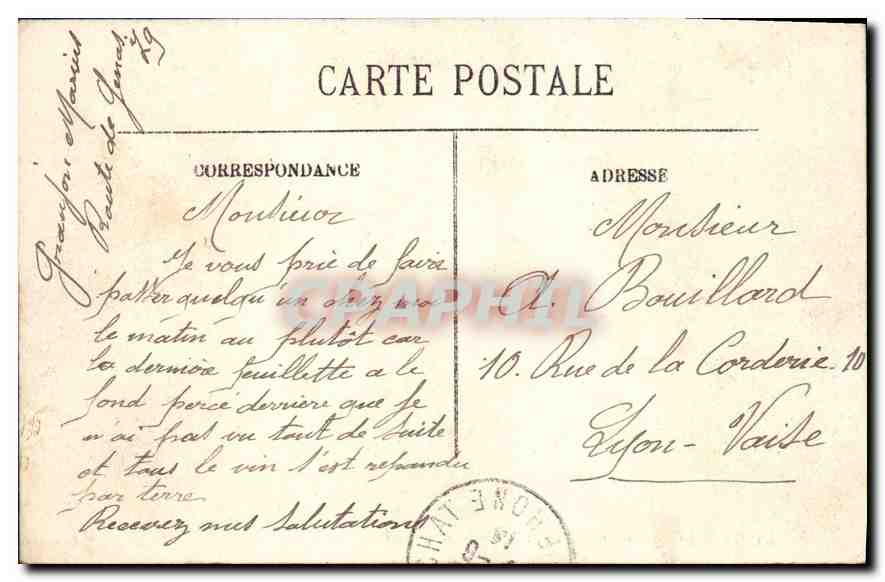 CARTE POSTALE
CORRESPONDANCE
Monsieur
Je vous prie de faire
passer quelqu'un chez moi
le matin au plutôt car
la dernière feuillette a le
fond percé derrière que je
n'ai pas vu tout de suite
et tous le vin s'est repandu
par terre
Recevez mes salutations
Marius
Route de Genas
29
ADRESSE
Monsieur
A. Bouillard
10. Rue de la Corderie. 10
Lyon-Vaise
CPAPHIL
RHONE